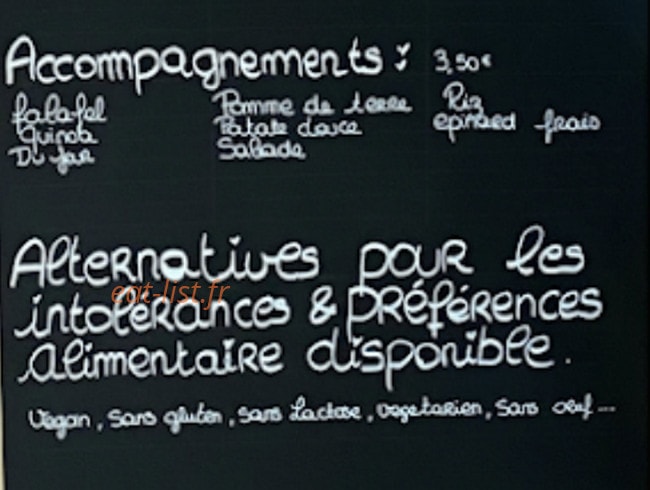 Accompagnements : 3,50€
falafel Pomme de terre Riz
Quinoa Patate douce epinard frais
Du jour Salade
Alternatives pour les
eat-list.fr
intolerances & préférences
alimentaire disponible.
Vegan, Sans gluten, sans Lactose, vegetarien, Sans oeuf ...